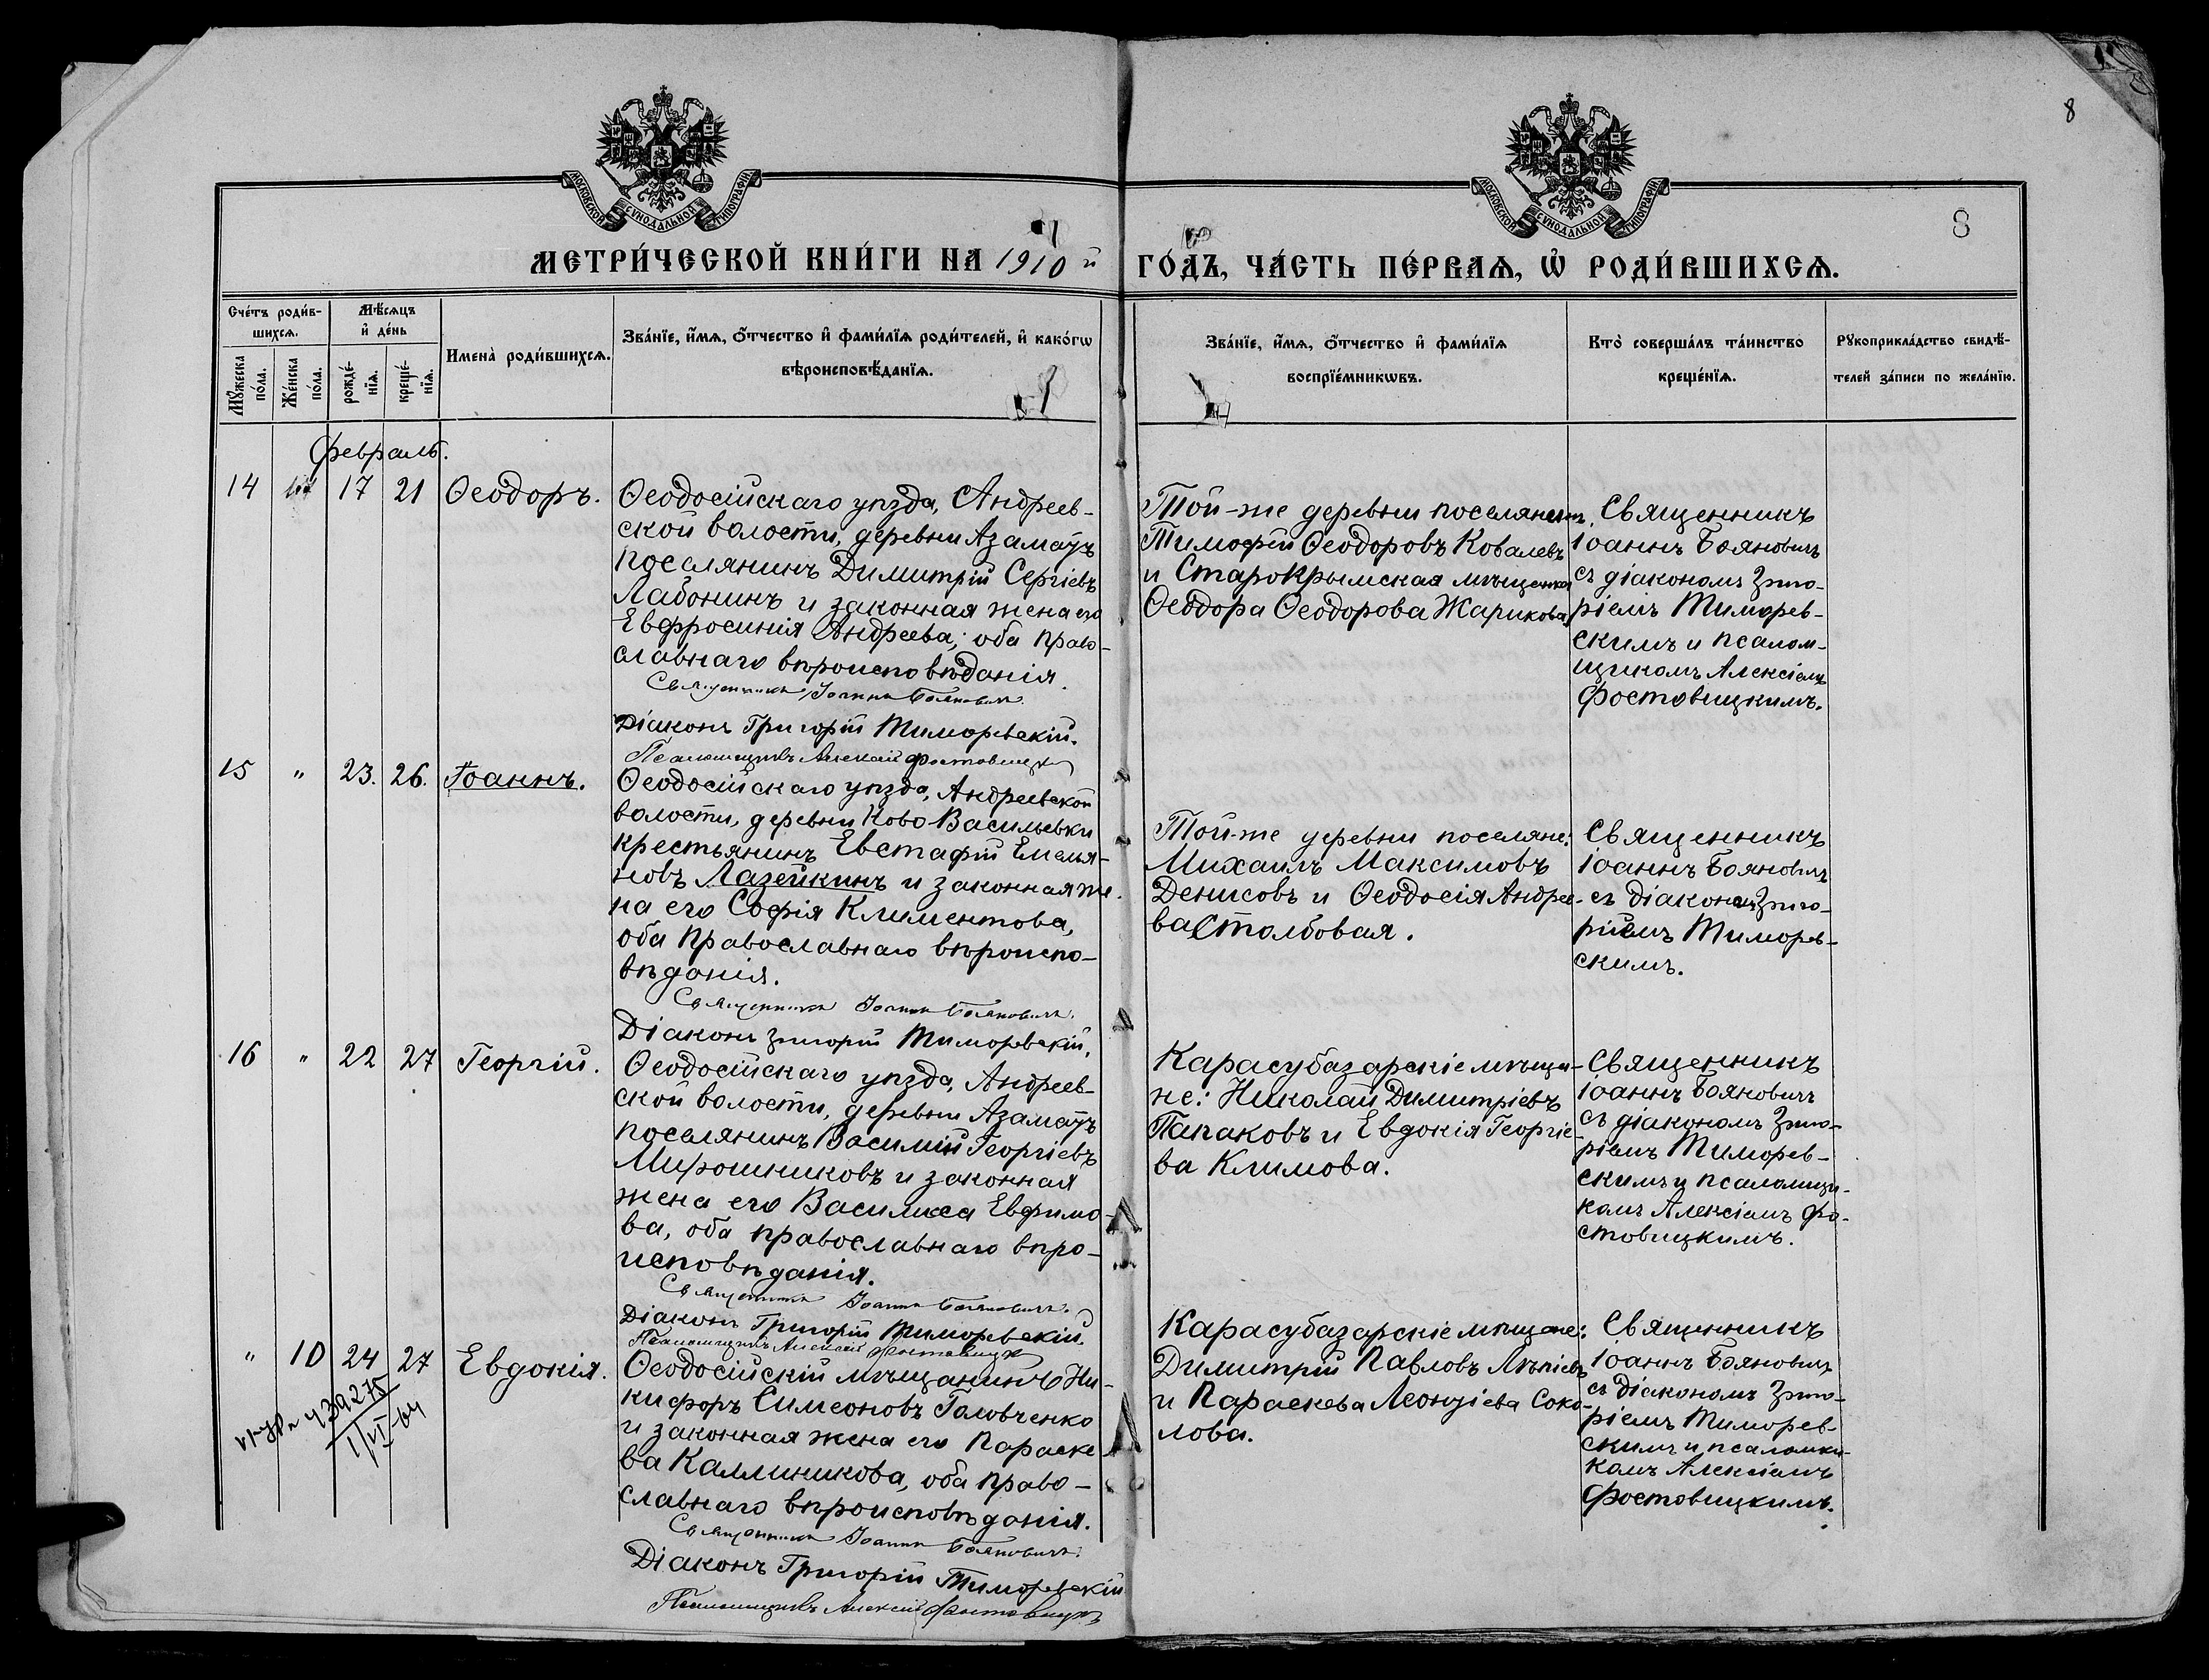 8
8
МОСКОВСКОЙ СУНОДАЛЬНОЙ ТИПОГРАФІИ
МОСКОВСКОЙ СУНОДАЛЬНОЙ ТИПОГРАФІИ
МЕТРИ́ЧЕСКОЙ КНИ́ГИ НА 1910 й ГО́ДЪ, ЧА́СТЬ ПЕ́РВАѦ, Ѽ РОДИ́ВШИХСѦ.
Сче́тъ роди́в-
шихсѧ.
Мꙋ́жеска по́ла.
Же́нска по́ла.
Мѣ́сѧцъ
и҆ де́нь
рожде́-
нїѧ.
креще́-
нїѧ.
Имена̀ роди́вшихсѧ.
Зва́нїе, и҆́мѧ, ѻ҆́тчество и҆ фами́лїѧ роди́телей, и҆ како́гѡ
вѣроисповѣ́данїѧ.
Зва́нїе, и҆́мѧ, ѻ҆́тчество и҆ фами́лїѧ
воспрїе́мникѡвъ.
Кто̀ соверша́лъ та́инство
креще́нїѧ.
Рꙋкоприкла́дство свидѣ́-
телей за́писи по жела́нїю.
Февраль.
14
17
21
Ѳеодоръ.
Ѳеодосійскаго уѣзда, Андреев-
ской волости, деревни Азаматъ
поселянинъ Димитрій Сергіевъ
Лабонинъ и законная жена его
Евфросинія Андреева; оба право-
славнаго вѣроисповѣданія.
Священникъ Іоаннъ Бояновичъ.
Діаконъ Григорій Тиморевскій.
Псаломщикъ Алексій Фостовицкій
Той-же деревни поселянинъ
Тимофей Ѳеодоровъ Ковалевъ
и Старокрымская мѣщанка
Ѳеодора Ѳеодорова Жарикова
Священникъ
Іоаннъ Бояновичъ
съ діакономъ Григо-
ріемъ Тиморев-
скимъ и псалом-
щикомъ Алексіемъ
Фостовицкимъ.
15
"
23.
26.
Іоаннъ.
Ѳеодосійскаго уѣзда, Андреевской
волости, деревни Ново Васильевки
крестьянинъ Евстафій Емелья-
новъ Лазейкинъ и законная же-
на его Софія Климентова,
оба православнаго вѣроиспо-
вѣданія.
Священникъ Іоаннъ Бояновичъ.
Діаконъ Григорій Тиморевскій.
Той-же деревни поселяне:
Михаилъ Максимовъ
Денисовъ и Ѳеодосія Андрее-
ва Столбовая.
Священникъ
Іоаннъ Бояновичъ
съ діакономъ Григо-
ріемъ Тиморев-
скимъ.
16
"
22
27
Георгій.
Ѳеодосійскаго уѣзда, Андреев-
ской волости, деревни Азаматъ
поселянинъ Василій Георгіевъ
Мирошниковъ и законная
жена его Василиса Евфимо-
ва, оба православнаго вѣро-
исповѣданія.
Священникъ Іоаннъ Бояновичъ.
Діаконъ Григорій Тиморевскій.
Псаломщикъ Алексій Фостовицкій
Карасубазарскіе мѣща-
не: Николай Димитріевъ
Папаковъ и Евдокія Георгіе-
ва Климова.
Священникъ
Іоаннъ Бояновичъ
съ діакономъ Григо-
ріемъ Тиморев-
скимъ и псаломщи-
комъ Алексіемъ Фо-
стовицкимъ.
"
10
24
27
Евдокія.
439275
1/VI-64
Ѳеодосійскій мѣщанинъ Ни-
кифоръ Симеоновъ Головченко
и законная жена его Параске-
ва Каллиникова, оба право-
славнаго вѣроисповѣданія.
Священникъ Іоаннъ Бояновичъ.
Діаконъ Григорій Тиморевскій
Псаломщикъ Алексій Фостовицкій
Карасубазарскіе мѣщане:
Димитрій Павловъ
и Параскева Леонтіева Соко-
лова.
Священникъ
Іоаннъ Бояновичъ
съ діакономъ Григо-
ріемъ Тиморев-
скимъ и псаломщи-
комъ Алексіемъ
Фостовицкимъ.